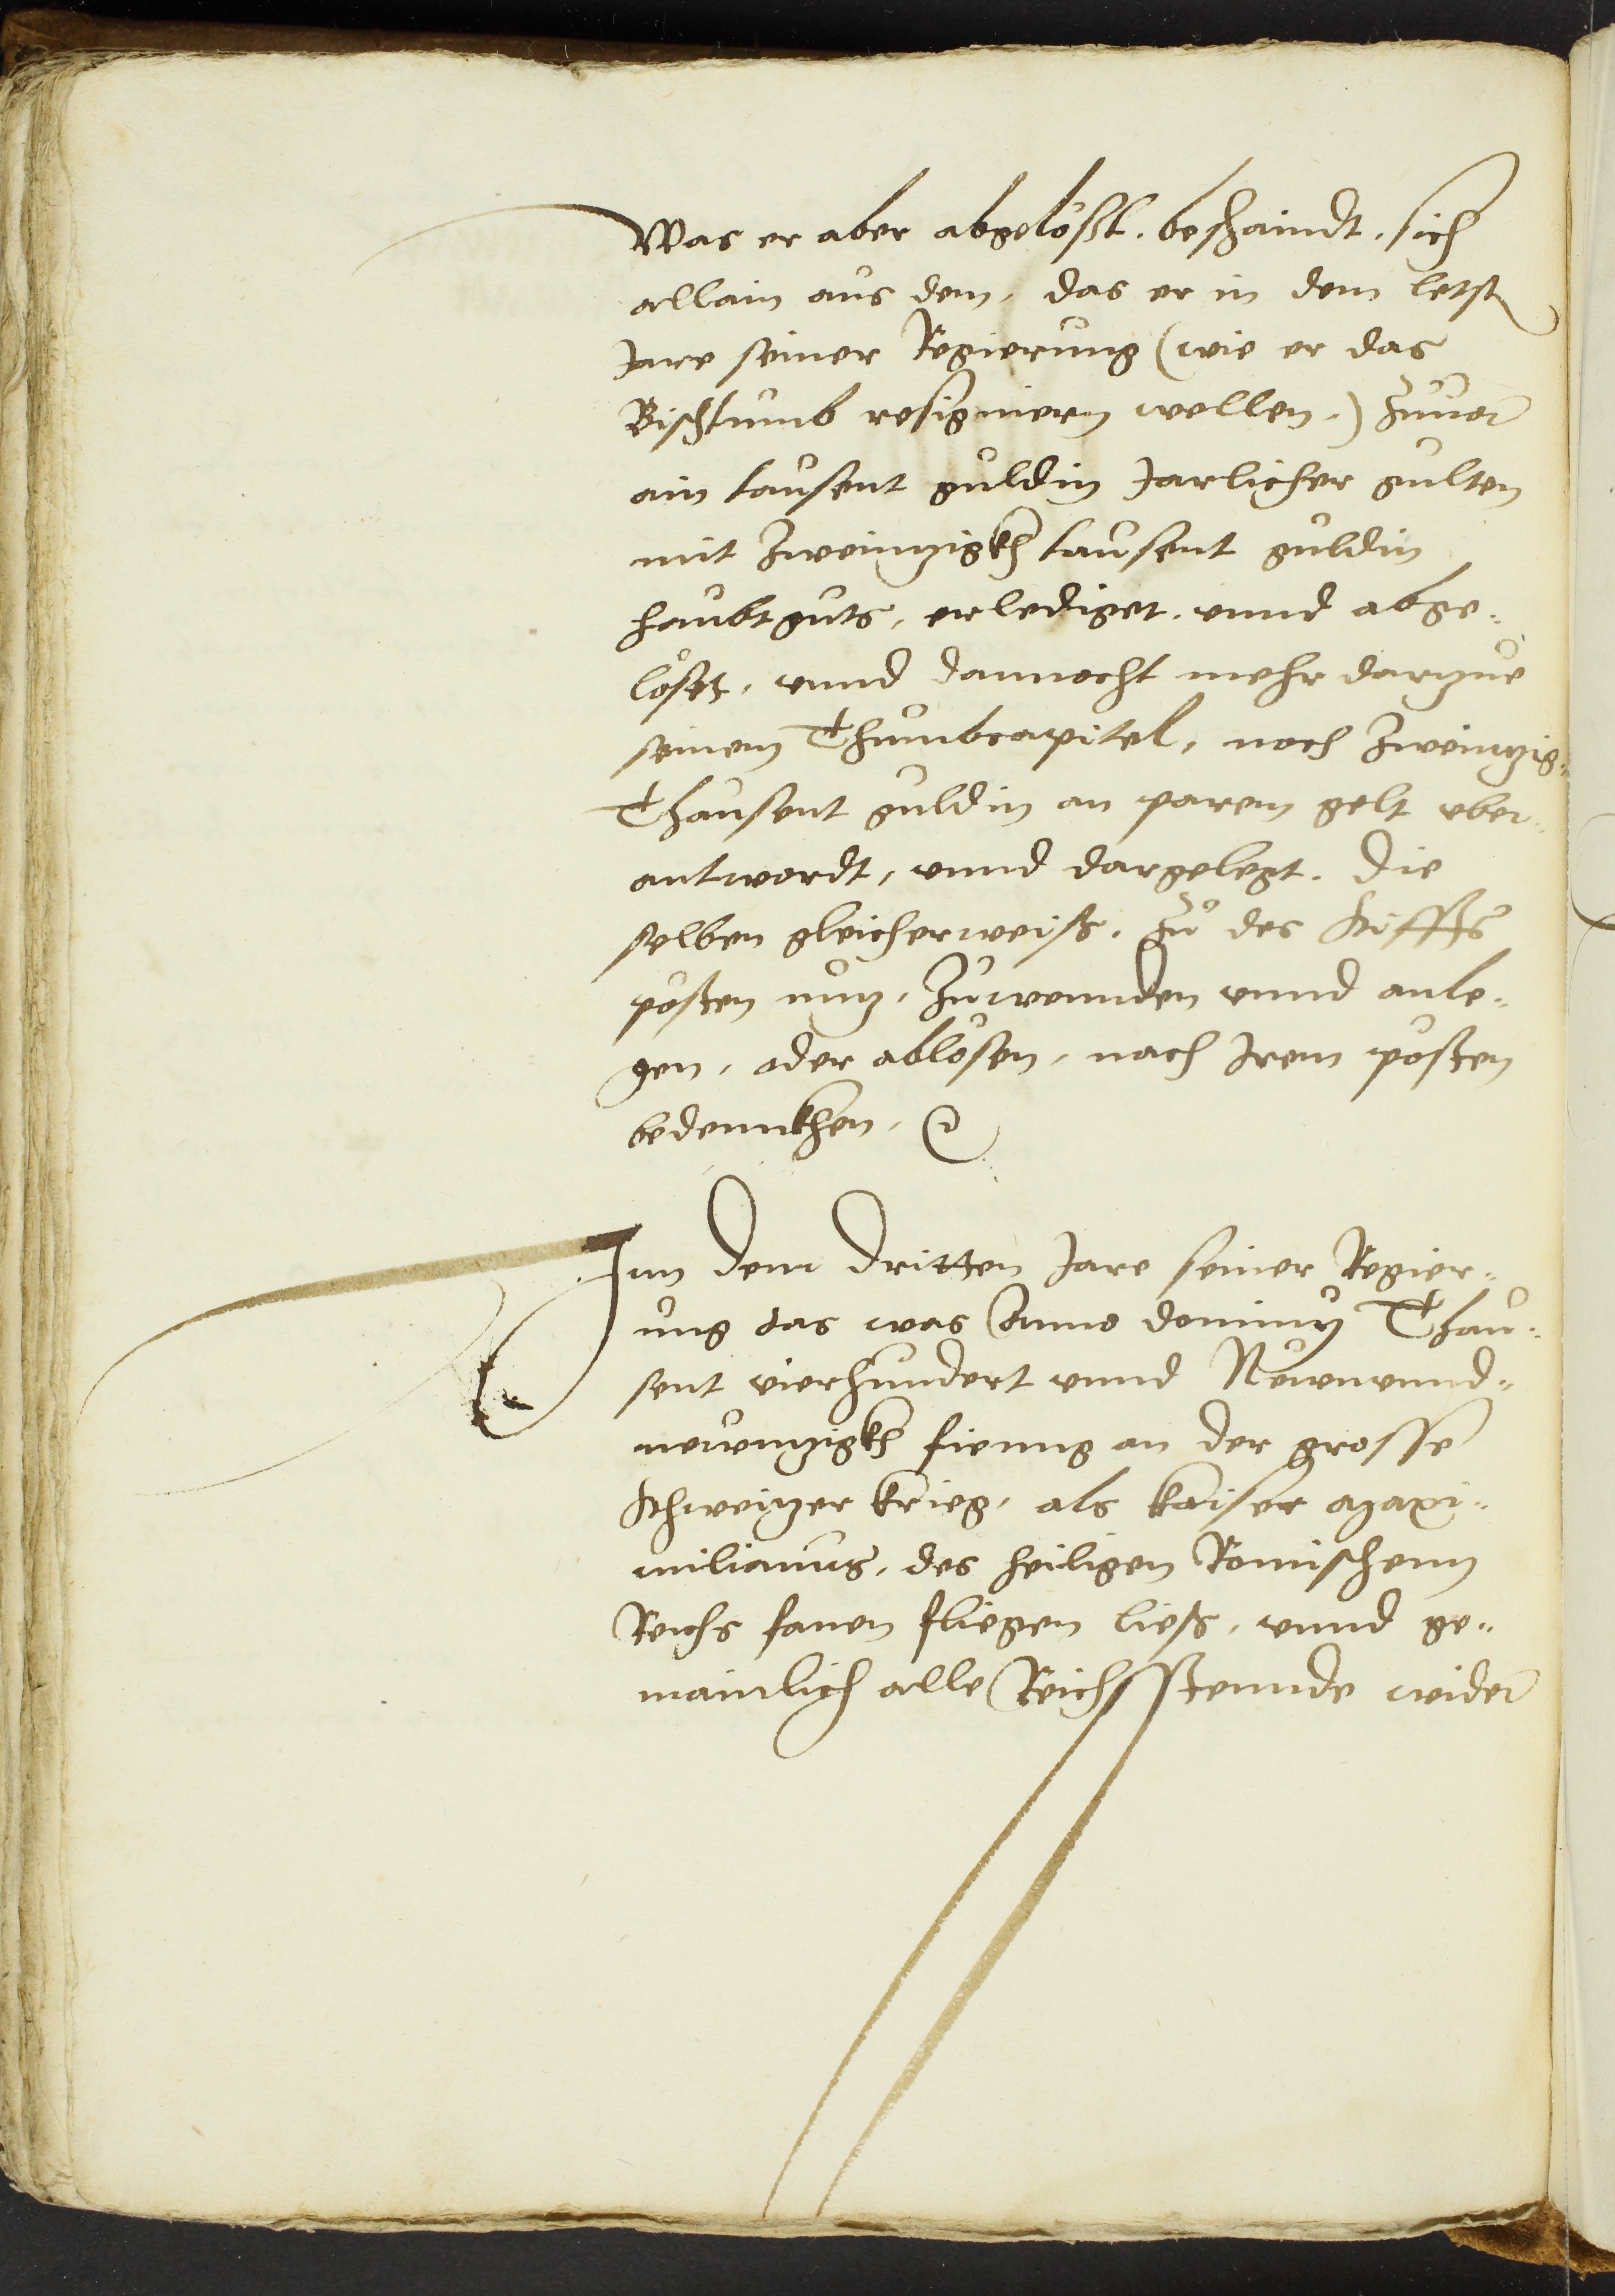 Was er aber abgelößt, beschaindt, sich
allain aus dem, das er in dem letsten
Jare seiner Regierung (wie er das
Bischtumb resigniern wellen,) zuuor
ain tausent guldin Jarlicher gulten
mit Zweintzigkh tausent guldin
haubtguts, erlediget, vnnd abge„
löset, vnnd dannocht mehr dartzue
seinem Thumbcapitel, noch Zweintzig„
Thausent guldin an parem gelt vber„
antwordt, vnnd dargelegt. Die
selben gleicherweiß, Zu des Stiffts
posten nutz, Zuwennden vnnd anle„
gen, oder ablösen, nach Irem posten
bedennkhen,
Inn dem dritten Jare seiner Regier„
ung das was Anno dominy Thau„
sent vierhundert vnnd Newnvnnd„
newntzigkh fienng an der grosse
Schweitzer krieg, als kaiser Maxi„
milianus, des heiligen Romischenn
Reichs fanen fliegen ließ, vnnd ge„
mainlich alle Reichsstennde wider